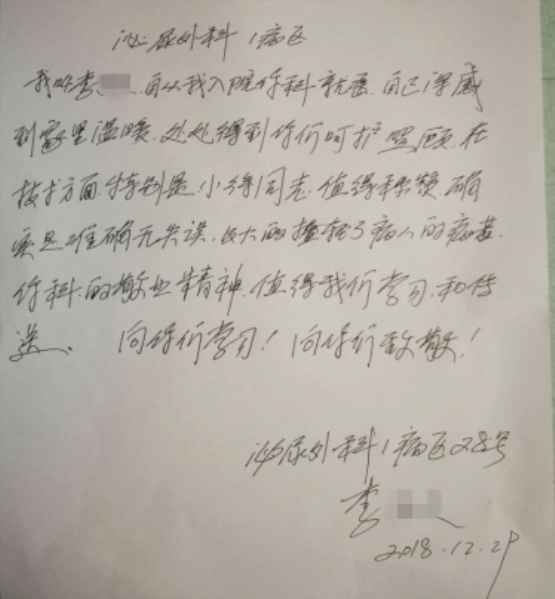 泌尿外科1病区
我叫李 自从我入院你科就医.自己深感
到家里温暖.处处得到你们呵护照顾.在
技术方面.特别是小徐同志.值得称赞.确
实是准确无失误.大大的减轻了病人的病苦.
你科.的敬业精神.值得我们学习.和传
送. 向你们学习!向你们致敬!
泌尿外科1病区28号
李
2018.12.29